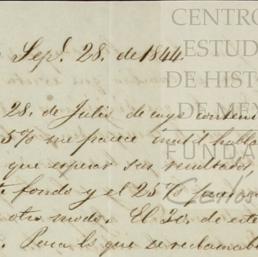 CENTRO
ESTUD
DE HISTO
DE MÉ
FUNDA
Sepe. 28. de 1844
28. de Julio de cuyo conten
5% me parece inutil habla
que esperar sus resultados,
fondo y el 25%
otro modo. El 30. de este
Para lo que se reclamaba